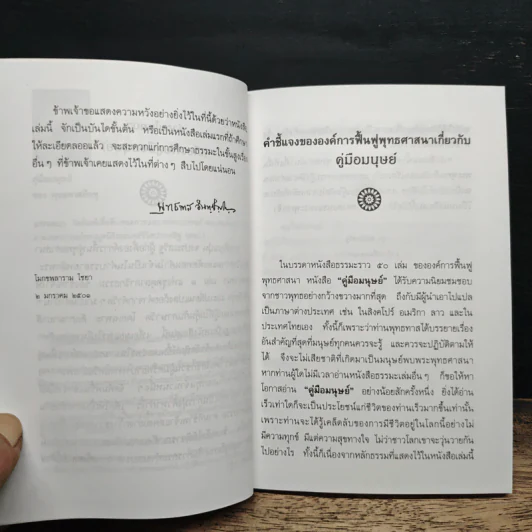 ข้าพเจ้าขอแสดงความหวังอย่างยิ่งไว้ในที่นี้ด้วยว่าหนังสือ
เล่มนี้ จักเป็นบันไดขั้นต้น หรือเป็นหนังสือเล่มแรกที่ถ้าศึกษา
ให้ละเอียดลออแล้ว จะสะดวกแก่การศึกษาธรรมะในขั้นสูงเรื่อง
อื่นๆ ที่ข้าพเจ้าเคยแสดงไว้ในที่ต่างๆ สืบไปโดยแน่นอน
พุทธทาส อินทปัญโญ
โมกขพลาราม ไชยา
๒ มกราคม ๒๕๐๑
คำชี้แจงขององค์การฟื้นฟูพุทธศาสนาเกี่ยวกับ
คู่มือมนุษย์
ในบรรดาหนังสือธรรมะราว ๕๐ เล่ม ขององค์การฟื้นฟู
พุทธศาสนา หนังสือ "คู่มือมนุษย์" ได้รับความนิยมชมชอบ
จากชาวพุทธอย่างกว้างขวางมากที่สุด ถึงกับมีผู้นำเอาไปแปล
เป็นภาษาต่างประเทศ เช่น ในสิงคโปร์ อเมริกา ลาว และใน
ประเทศไทยเอง ทั้งนี้ก็เพราะว่าท่านพุทธทาสได้บรรยายเรื่อง
อันสำคัญที่สุดที่มนุษย์ทุกคนควรจะรู้ และควรจะปฏิบัติตามให้
ได้ จึงจะไม่เสียชาติที่เกิดมาเป็นมนุษย์พบพระพุทธศาสนา
หากท่านผู้ใดไม่มีเวลาอ่านหนังสือธรรมะเล่มอื่นๆ ก็ขอให้หา
โอกาสอ่าน "คู่มือมนุษย์" อย่างน้อยสักครั้งหนึ่ง ยิ่งได้อ่าน
เร็วเท่าใดก็จะเป็นประโยชน์แก่ชีวิตของท่านเร็วมากขึ้นเท่านั้น
เพราะท่านจะได้รู้เคล็ดลับของการมีชีวิตอยู่ในโลกนี้อย่างไม่
มีความทุกข์ มีแต่ความสุขทางใจ ไม่ว่าชาวโลกเขาจะวุ่นวายกัน
ไปอย่างไร ทั้งนี้ก็เนื่องจากหลักธรรมที่แสดงไว้ในหนังสือเล่มนี้